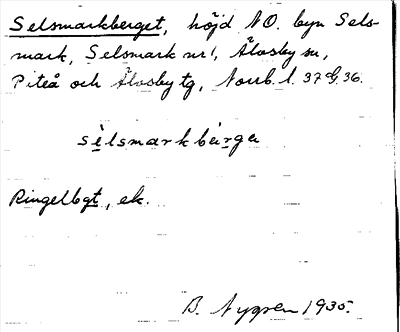 Selsmarkberget, höjd NO. byn Sels-
mark, Selsmark nr 1, Älvsby sn,
Piteå och Älvsby tg, Norrb. l. 37 G. 36.
sèlsmarkbàrga
Ringelbgt, ek.
B. Nygren 1935.